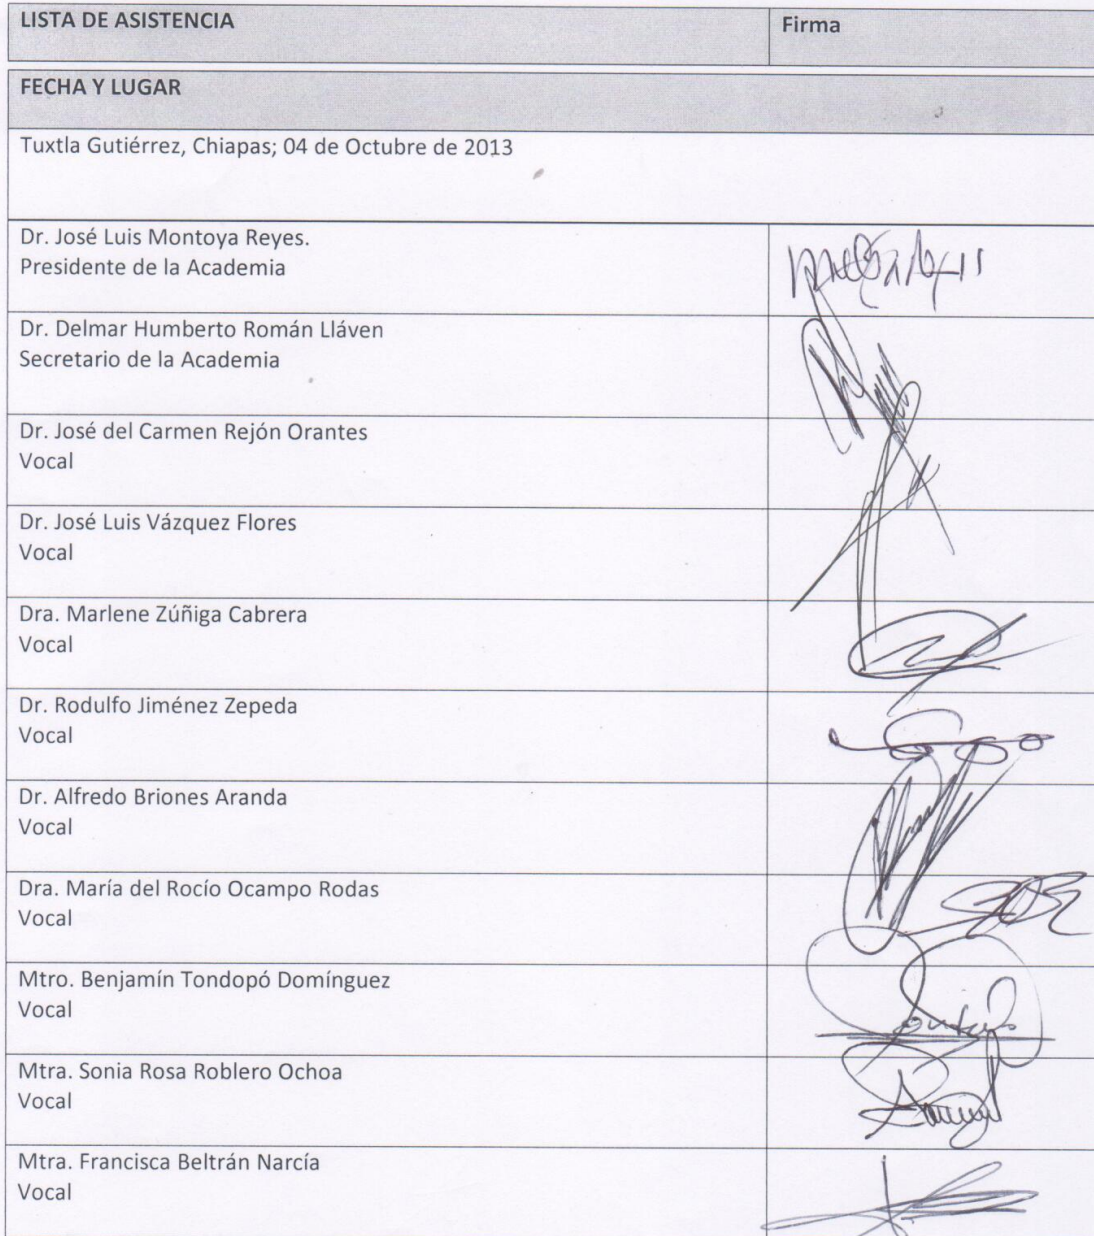 LISTA DE ASISTENCIA Firma
FECHA Y LUGAR
Tuxtla Gutiérrez, Chiapas; 04 de Octubre de 2013
Dr. José Luis Montoya Reyes.
Presidente de la Academia
Dr. Delmar Humberto Román Lláven
Secretario de la Academia
Dr. José del Carmen Rejón Orantes
Vocal
Dr. José Luis Vázquez Flores
Vocal
Dra. Marlene Zúñiga Cabrera
Vocal
Dr. Rodulfo Jiménez Zepeda
Vocal
Dr. Alfredo Briones Aranda
Vocal
Dra. María del Rocío Ocampo Rodas
Vocal
Mtro. Benjamín Tondopó Domínguez
Vocal
Mtra. Sonia Rosa Roblero Ochoa
Vocal
Mtra. Francisca Beltrán Narcía
Vocal